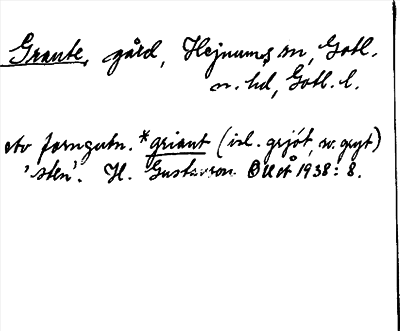 Graute, gård, Hejnums sn, Gotl.
n. hd, Gotl. l.
Av forngutn. *griaut (isl. grjót, sv. gryt)
'sten'. H. Gustavson 1938: 8.